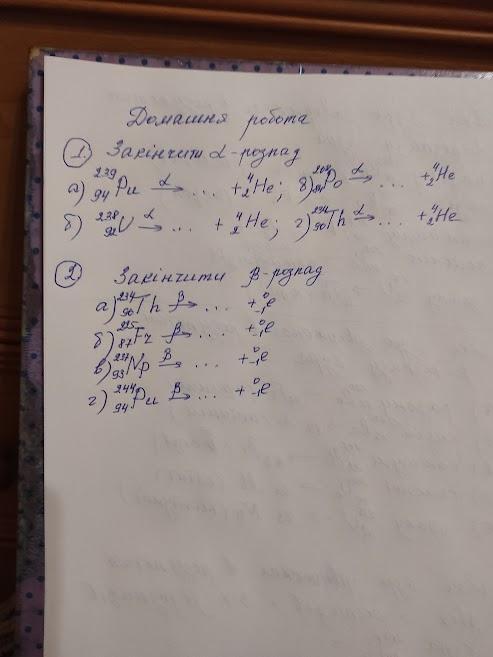 Домашня робота
① Закінчити α-розпад
а) ²³⁹₉₄Pu α→ ... + ⁴₂He; в) ²⁰⁴₈₄Po α→ ... + ⁴₂He
б) ²³⁸₉₂U α→ ... + ⁴₂He; г) ²³⁴₉₀Th α→ ... + ⁴₂He
② Закінчити β-розпад
а) ²³⁴₉₀Th β→ ... + ⁰₋₁e
б) ²²⁵₈₇Fr β→ ... + ⁰₋₁e
в) ²³⁷₉₃Np β→ ... + ⁰₋₁e
г) ²⁴⁴₉₄Pu β→ ... + ⁰₋₁e